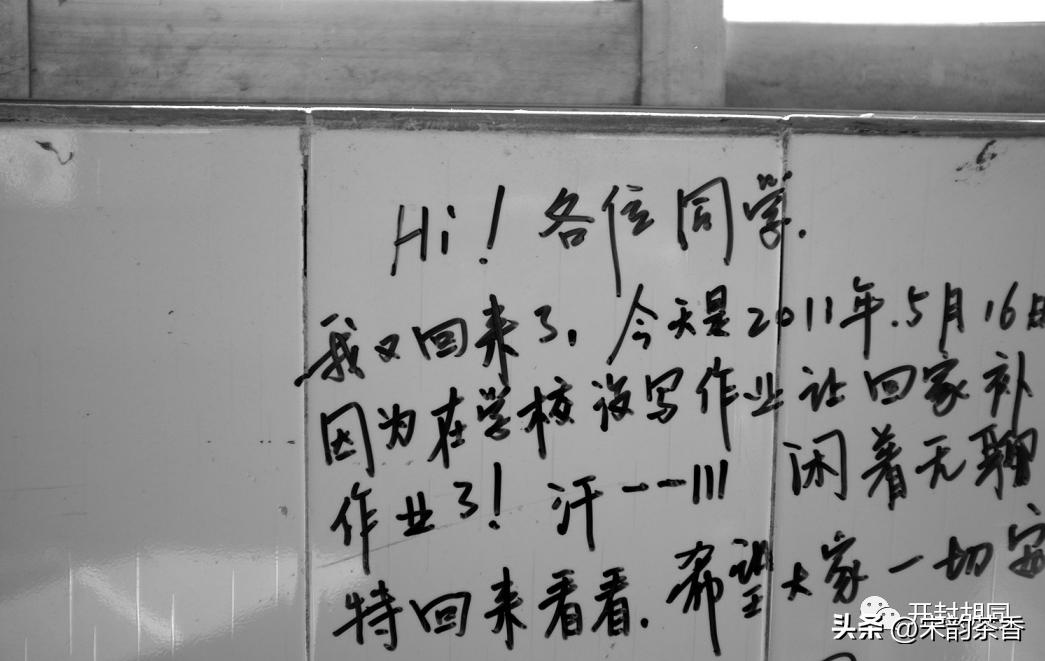 Hi！各位同学.
我又回来了,今天是2011年.5月16
因为在学校没写作业让回家补
作业了！汗一一111 闲着无聊
特回来看看.希望大家一切安
开封胡同
头条 @宋韵茶香